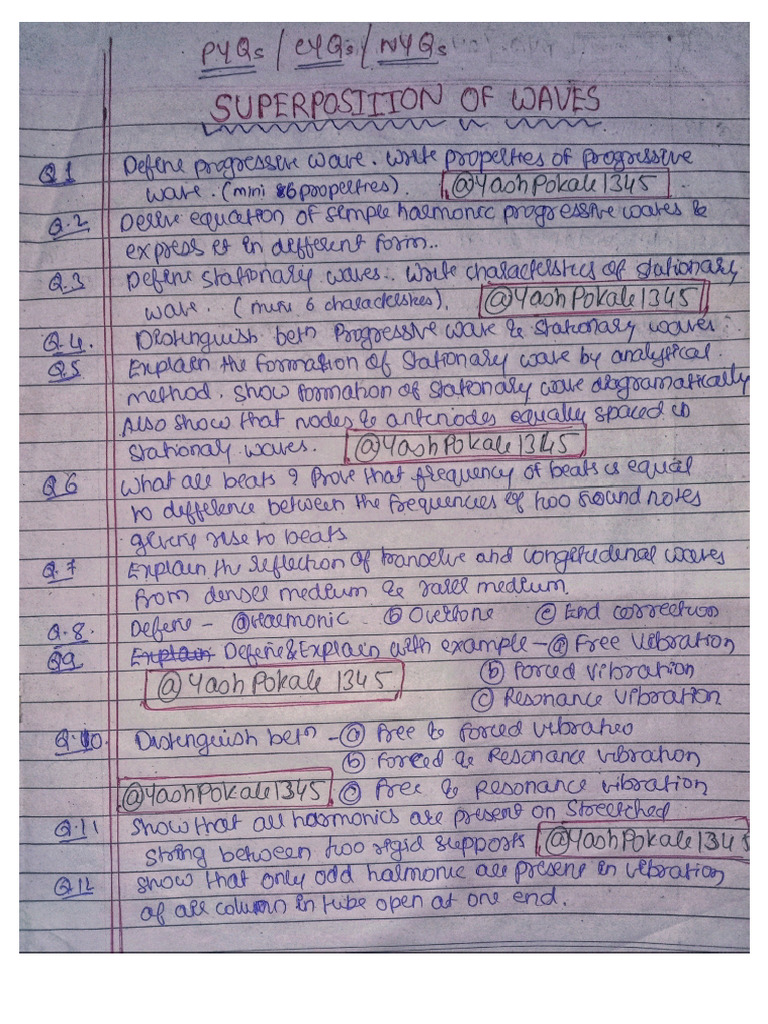 PYQs / CYQs / NYQs
SUPERPOSITION OF WAVES
Q1 Define progressive wave. Write properties of progressive
wave. (mini 6 properties). @YashPokale1345
Q.2 Derive equation of simple harmonic progressive waves &
express it in different form..
Q.3 Define stationary waves. Write characteristics of stationary
wave. (mini 6 characteristics). @YashPokale1345
Q.4. Distinguish betn Progressive wave & stationary waves.
Q.5 Explain the formation of stationary wave by analytical
method. Show formation of stationary wave diagramatically
Also show that nodes & antinodes equally spaced in
stationary waves. @YashPokale1345
Q6 What are beats? Prove that frequency of beats is equal
to difference between the frequencies of two sound notes
giving rise to beats
Q.7 Explain the reflection of transverse and longitudinal waves
from denser medium & rarer medium.
Q.8. Define - ⓐ Harmonic ⓑ Overtone ⓒ End correction
Q9 Explain Define & Explain with example - ⓐ Free Vibration
@YashPokale1345 ⓑ Forced vibration
ⓒ Resonance vibration
Q.10. Distinguish betn - ⓐ Free & forced vibratio
ⓑ Forced & Resonance vibration
@YashPokale1345 ⓒ Free & Resonance vibration
Q.11 Show that all harmonics are present on Stretched
string between two rigid supports @YashPokale1345
Q.12 Show that only odd harmonic are present in vibration
of air column in tube open at one end.